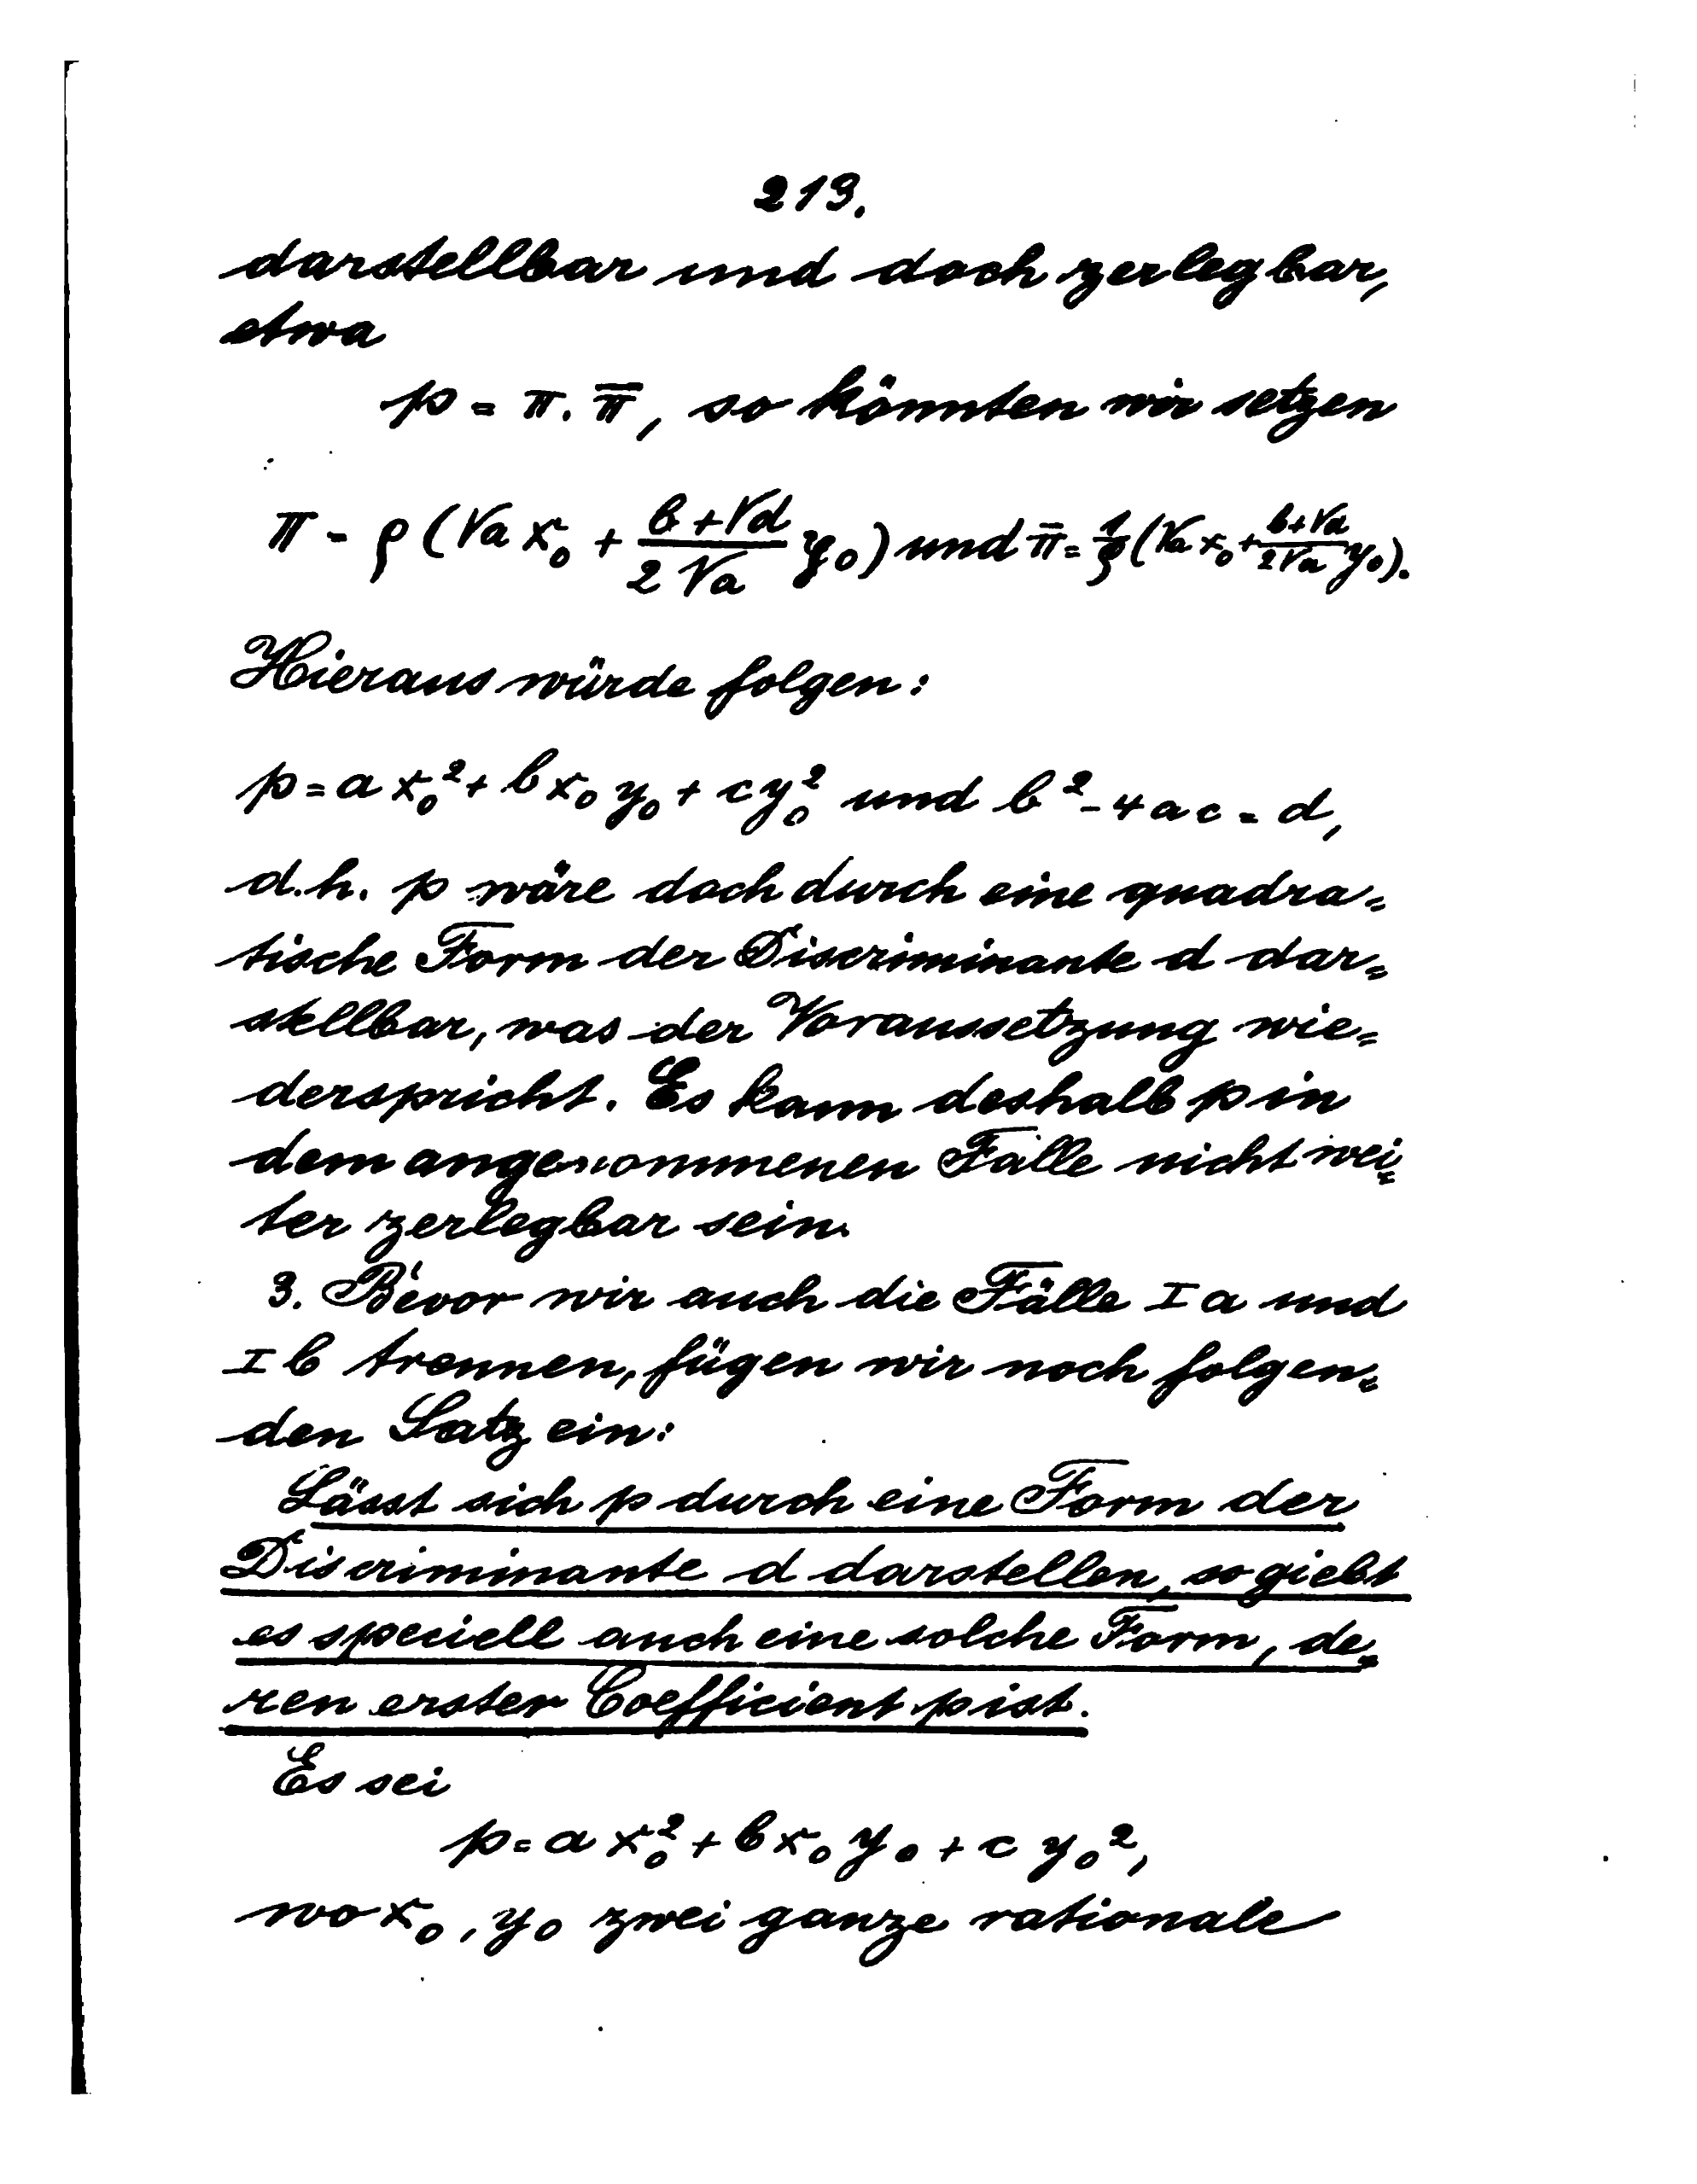 219.
darstellbar und doch zerlegbar,
etwa
p = π. π̅, so könnten wir setzen
π = ρ (√a x₀ + (b+√d)/(2√a) y₀) und π̅ = 1/ρ (√a x₀ + (b+√d)/(2√a) y₀).
Hieraus würde folgen:
p = a x₀² + b x₀ y₀ + c y₀² und b² - 4ac = d,
d. h. p wäre doch durch eine quadra=
tische Form der Discriminante d dar=
stellbar, was der Voraussetzung wie=
derspricht. Es kann deshalb p in
dem angenommenen Falle nicht wei=
ter zerlegbar sein.
3. Bevor wir auch die Fälle I a und
I b trennen, fügen wir noch folgen=
den Satz ein:
Lässt sich p durch eine Form der
Discriminante d darstellen, so giebt
es speciell auch eine solche Form, de=
ren erster Coefficient p ist.
Es sei
p = a x₀² + b x₀ y₀ + c y₀²,
wo x₀, y₀ zwei ganze rationale